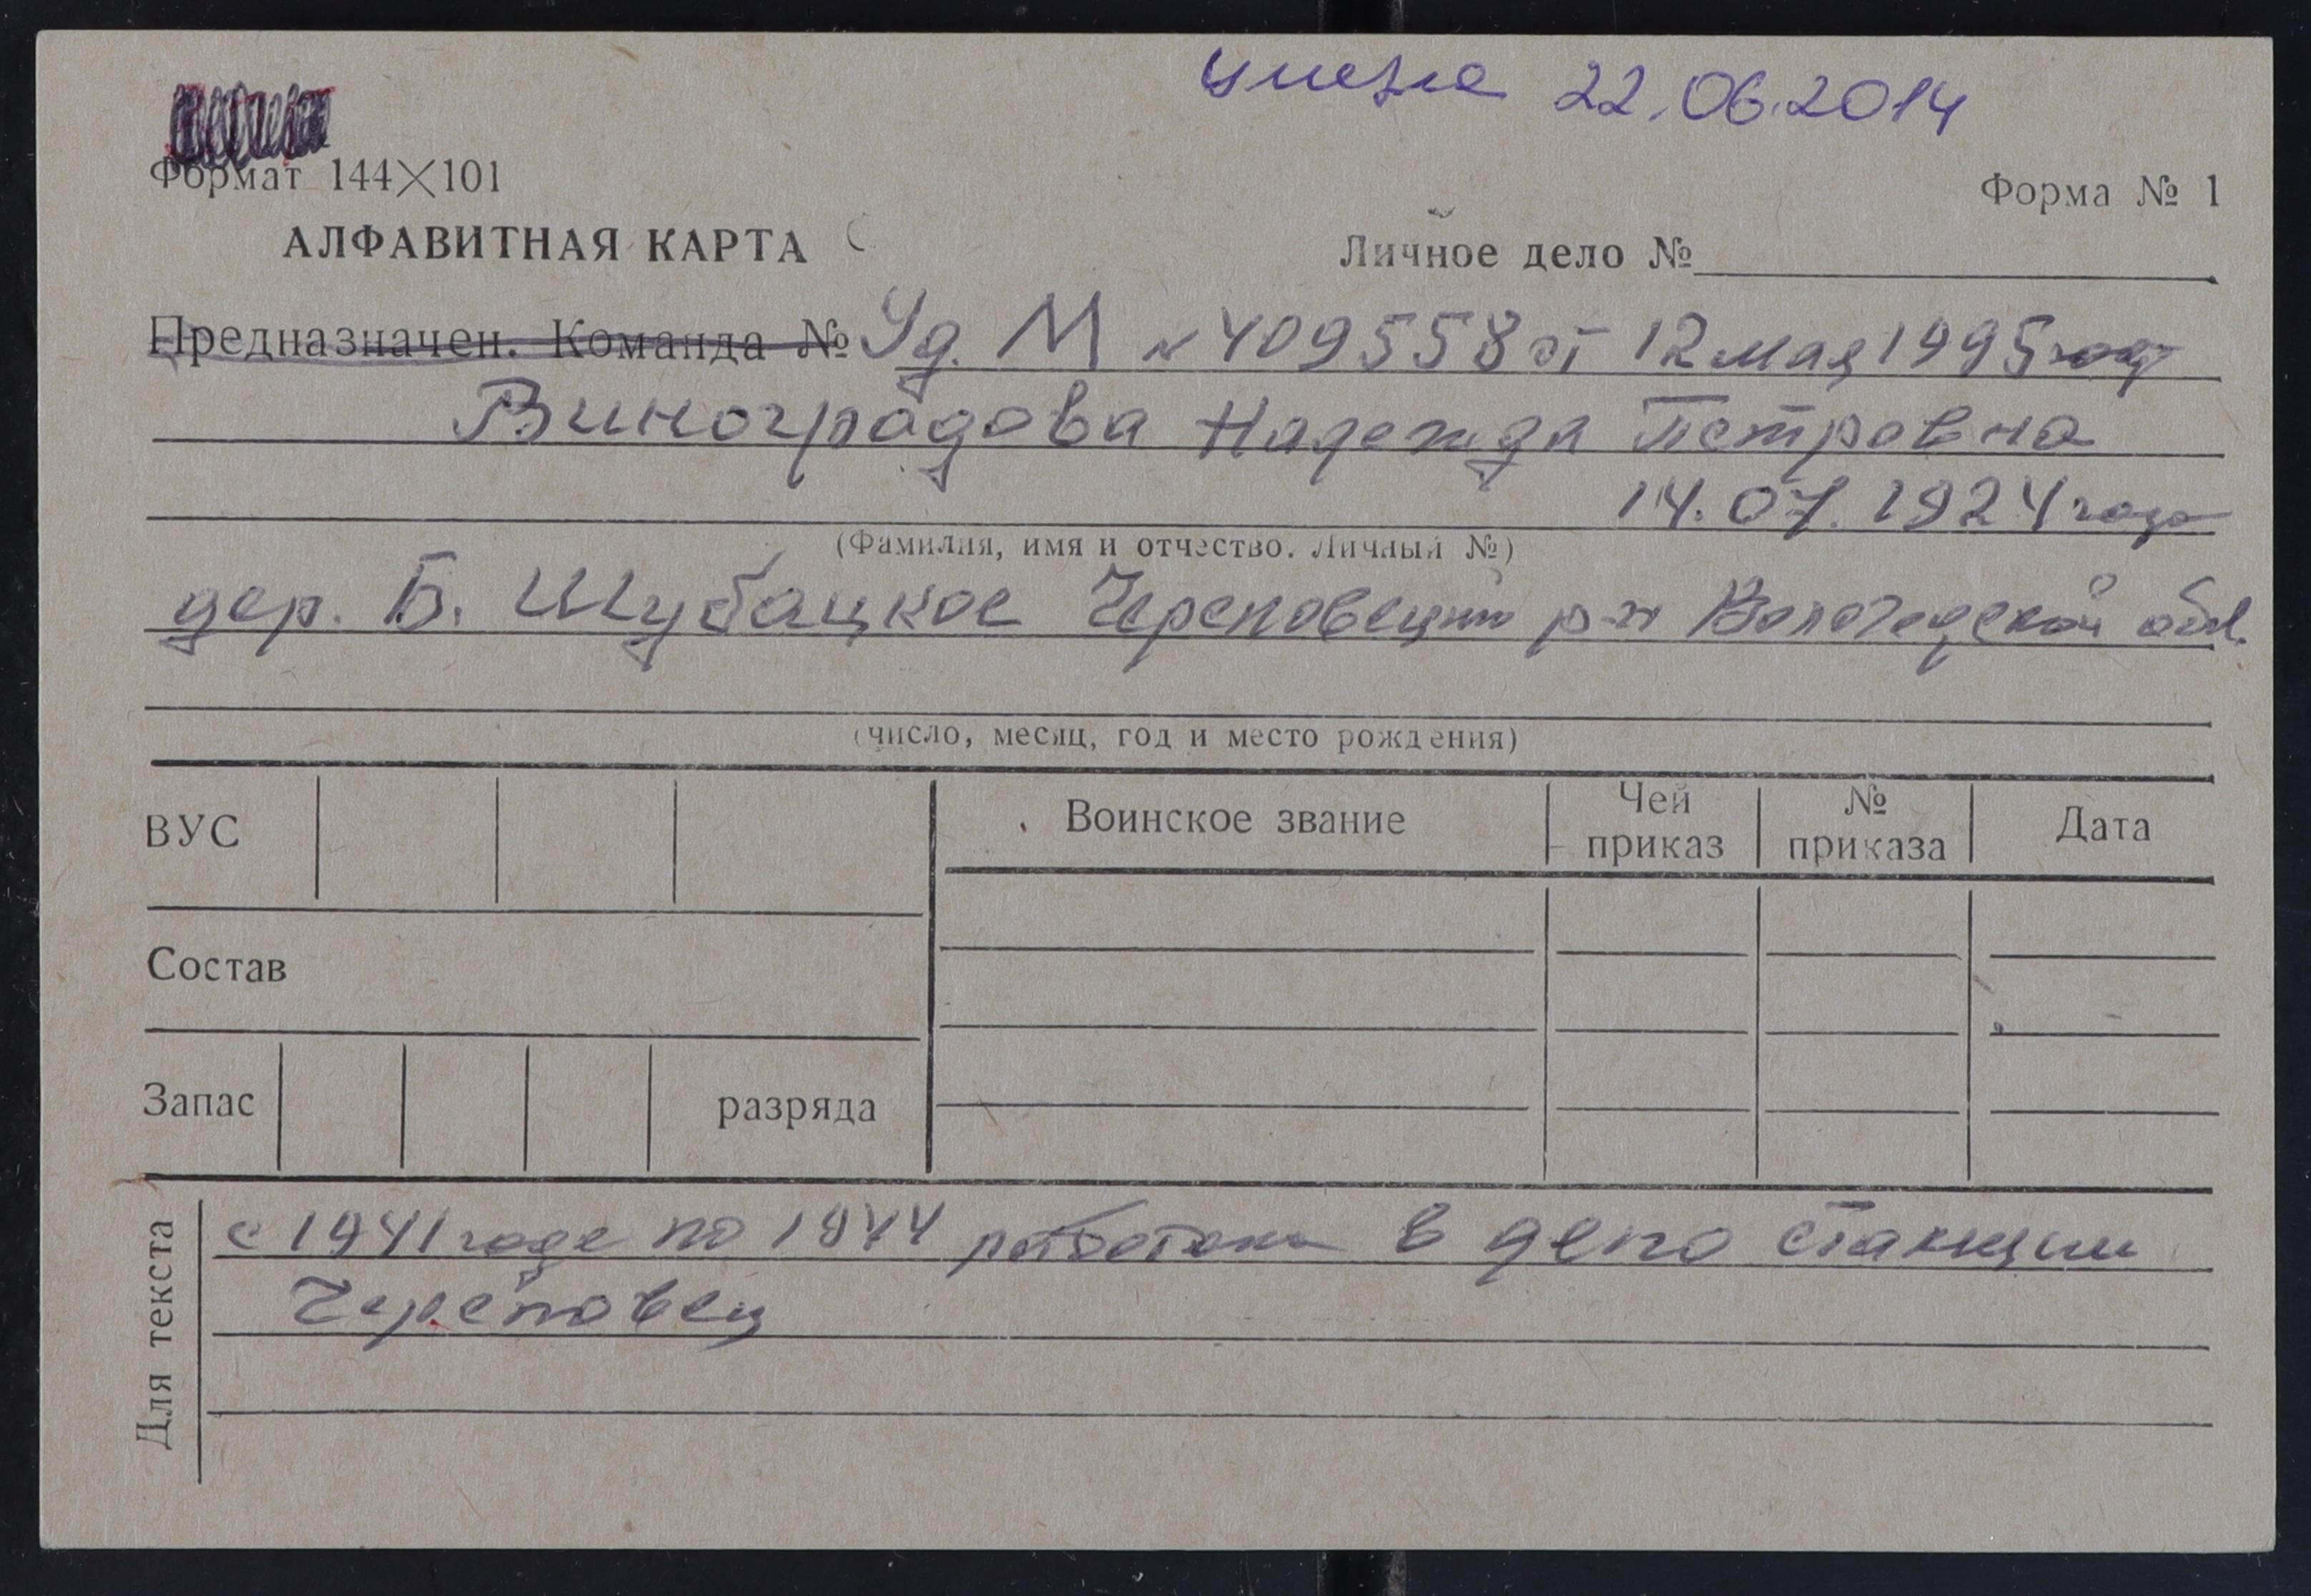 умерла 22.06.2014
Формат 144×101
Форма № 1
АЛФАВИТНАЯ КАРТА
Личное дело №
Предназначен. Команда № Уд. М № 409558 от 12 мая 1995 года
Виноградова Надежда Петровна
14.07.1924 года
(Фамилия, имя и отчество. Личный №)
дер. Б. Шубацкое Череповецкий р-н Вологодской обл.
(число, месяц, год и место рождения)
ВУС
Воинское звание
Чей приказ
№ приказа
Дата
Состав
Запас
разряда
Для текста
с 1941 года по 1944 работала в депо станции
Череповец